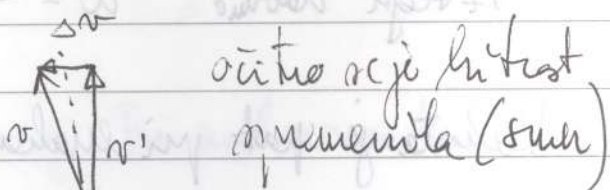 Δv
očitno se je hitrost
v v' spremenila (smer)